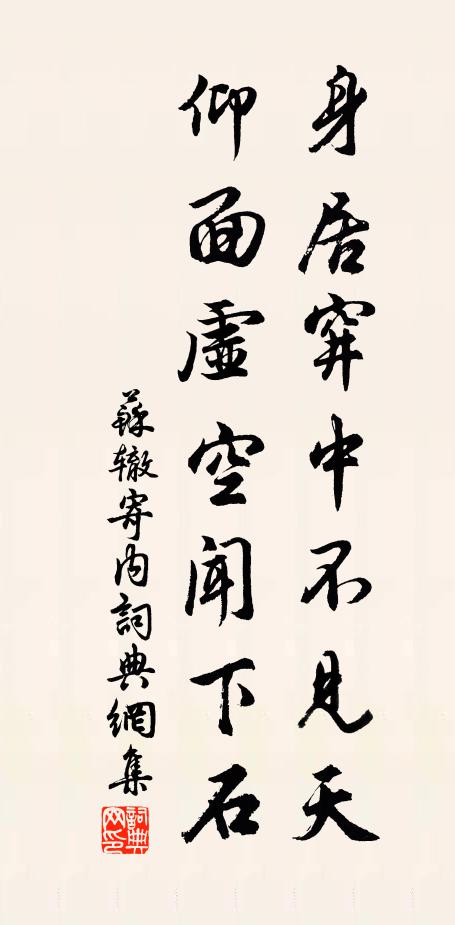 身居穽中不見天
仰面虛空聞下石
蘇轍寄内詞典網集
詞典网印